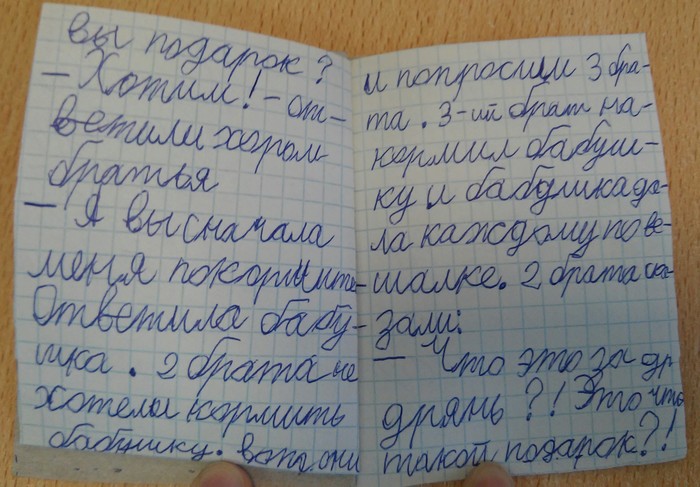 вы подарок?
— Хотим! - от-
ветили хором
братья
— А вы сначала
меня покормите
Ответила бабу-
шка. 2 брата не
хотели кормить
бабушку. они
и попросили 3 бра-
та. 3-ий брат на-
кормил бабуш-
ку и бабушка да-
ла каждому по ве-
шалке. 2 брата ска-
зали:
— Что это за др
дрянь?! Это что
такой подарок?!